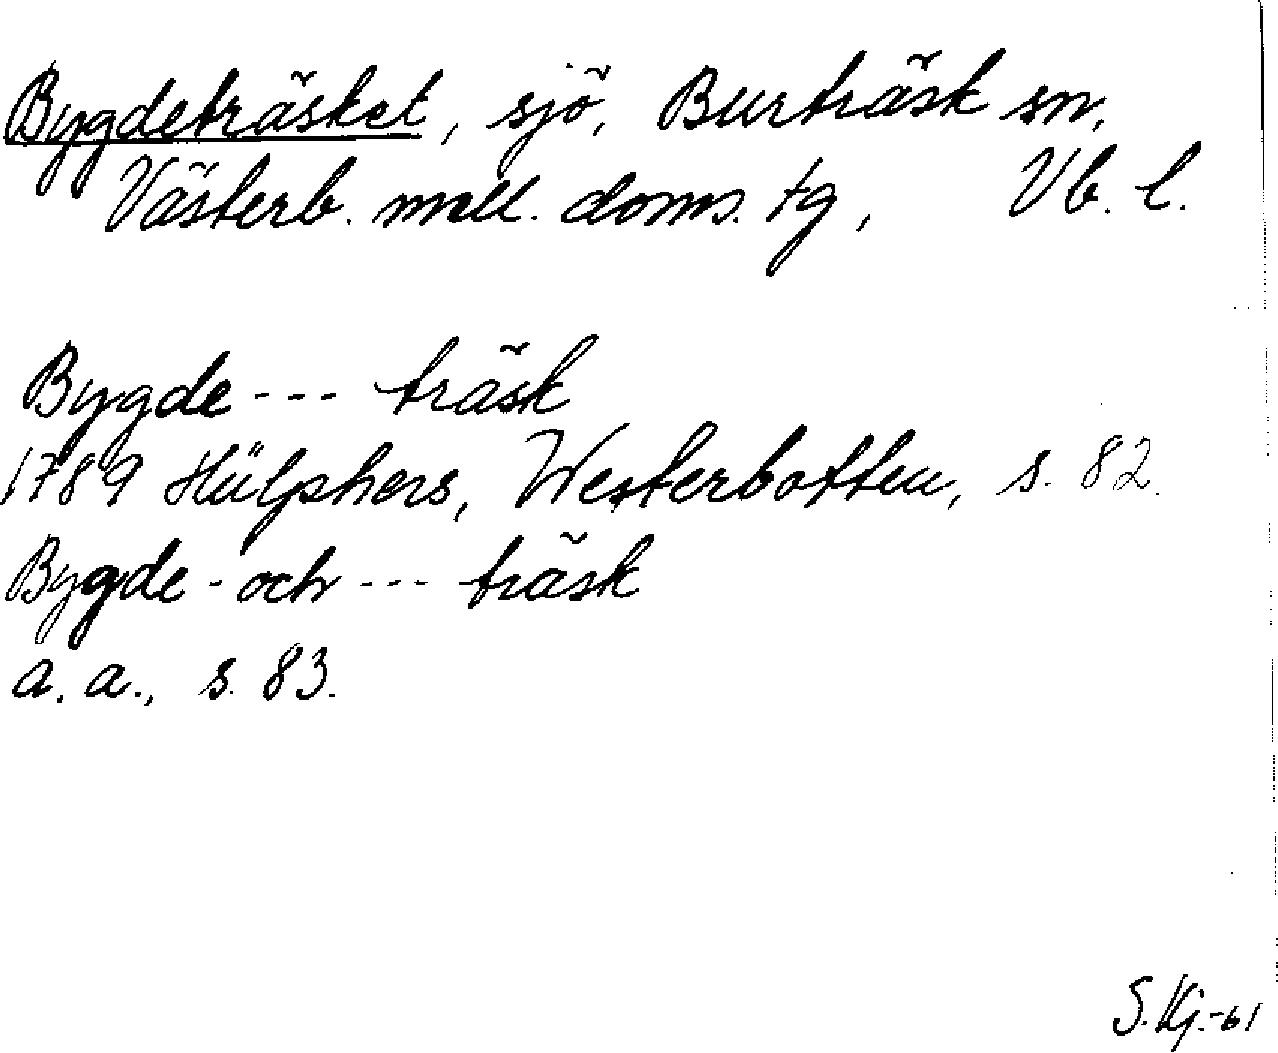 Bygdeträsket, sjö, Burträsk sn,
Västerb. mell. doms. tg, Vb. l.
Bygde --- träsk
1789 Hülphers, Westerbotten, s. 82.
Bygde - och --- träsk
a. a., s. 83.
S. Kj. -61